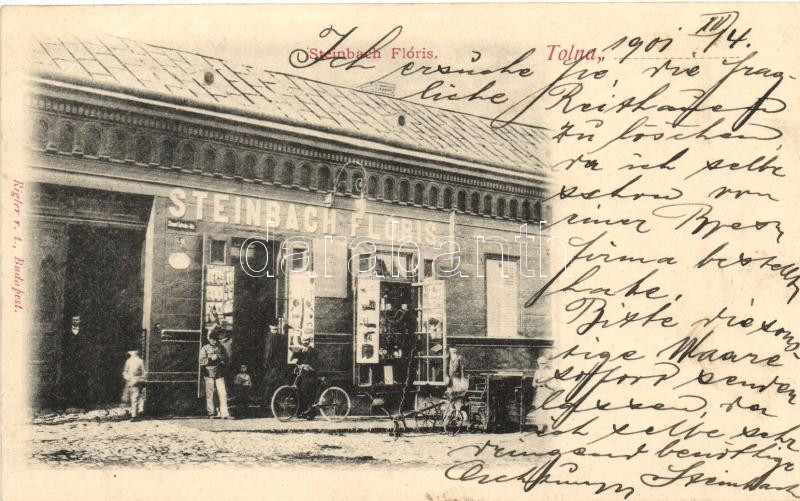 Steinbach Flóris.
Tolna, 1901 IV/4.
Ich ersuche Sie, die frag-
liche Reithauen
zu löschen,
da ich selbe
schon von
einer
firma bestellt
habe.
Bitte die sons-
tige Waare
sofort senden
lassen, da
ich selbe sehr
dringend benöthige
Steinbach
STEINBACH FLÓRIS
Rigler r. t., Budapest.
darabanth